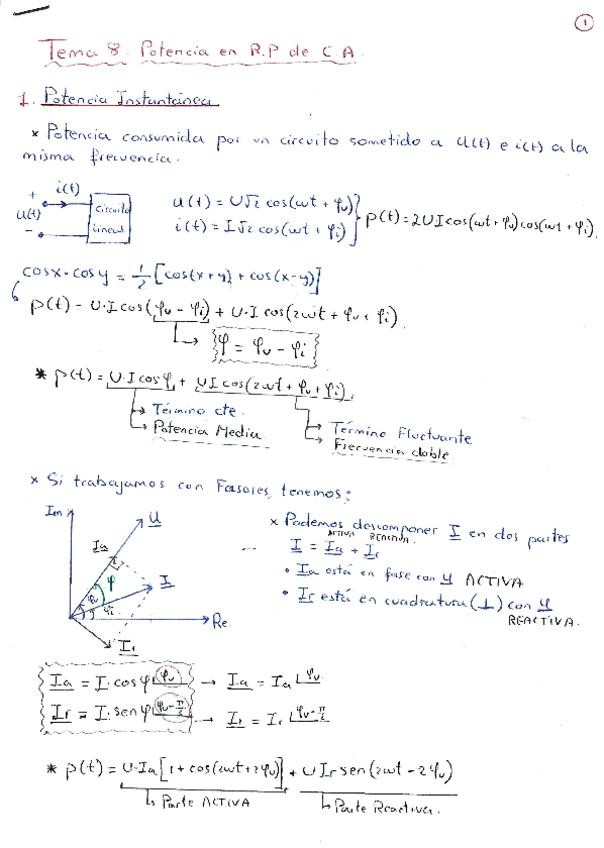 1
Tema 8. Potencia en R.P de C A.
1. Potencia Instantánea
* Potencia consumida por un circuito sometido a u(t) e i(t) a la
misma frecuencia.
+ i(t)
u(t)
-
circuito
lineal
u(t) = U√2 cos(ωt + φu)
i(t) = I√2 cos(ωt + φi)
p(t) = 2UI cos(ωt + φu) cos(ωt + φi)
cosx · cosy = 1/2 [cos(x+y) + cos(x-y)]
p(t) = U·I cos(φu - φi) + U·I cos(2ωt + φu + φi)
φ = φu - φi
* p(t) = U·I cosφ + UI cos(2ωt + φu + φi)
→ Término cte.
→ Potencia Media
→ Término Fluctuante
→ Frecuencia doble
* Si trabajamos con Fasores, tenemos:
Im
U
Ia
φ
I
φu
φi
Re
Ir
* Podemos descomponer I en dos partes
ACTIVA REACTIVA
I = Ia + Ir
• Ia está en fase con U ACTIVA
• Ir está en cuadratura (⊥) con U
REACTIVA.
Ia = I·cosφ ∠φu → Ia = Ia ∠φu
Ir = I·senφ ∠φu-π/2 → Ir = Ir ∠φu-π/2
* p(t) = U·Ia[1 + cos(2ωt+2φu)] + U Ir sen(2ωt - 2φu)
↳ Parte ACTIVA
↳ Parte Reactiva.